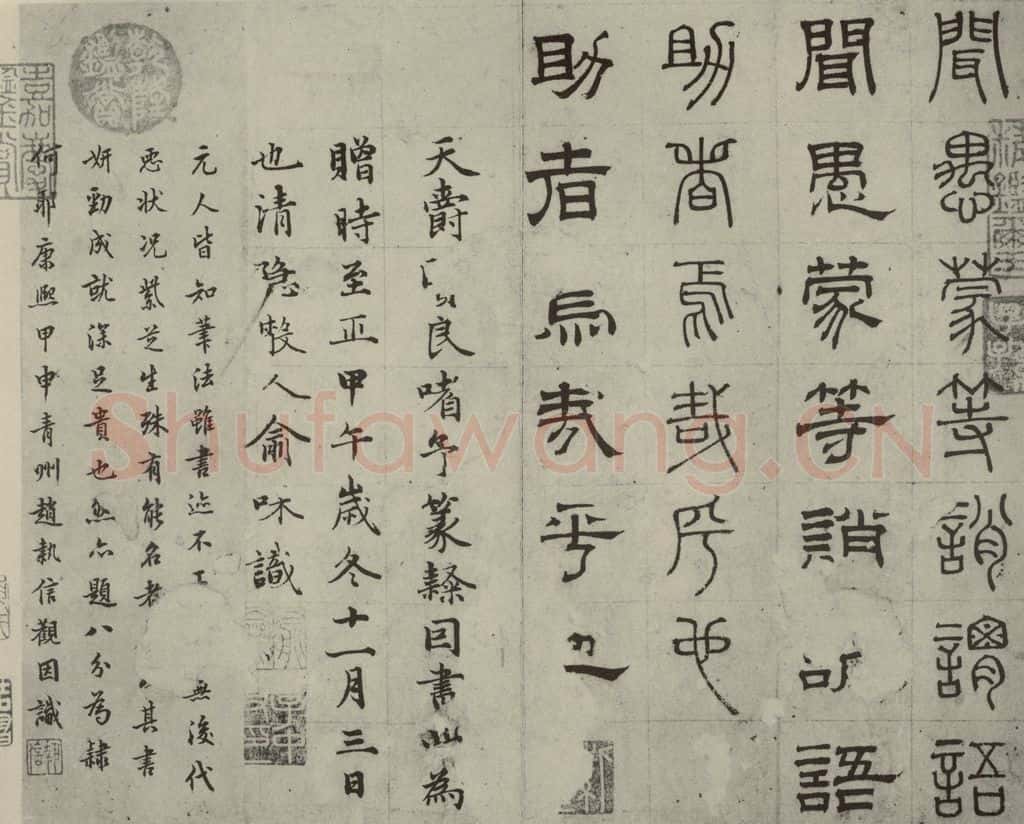 聞愚蒙等誚謂語
聞愚蒙等誚語
助者焉哉乎也
助者焉哉乎也
天爵良嗜予篆隸因書此為
贈時至正甲午歲冬十一月三日
也清隱散人俞和識
元人皆知筆法雖書迹不工無後代
惡狀況紫芝生殊有能名者其書
妍勁成就深足貴也然亦題八分為隸
何耶康熙甲申青州趙執信觀因識
Shufawang.CN